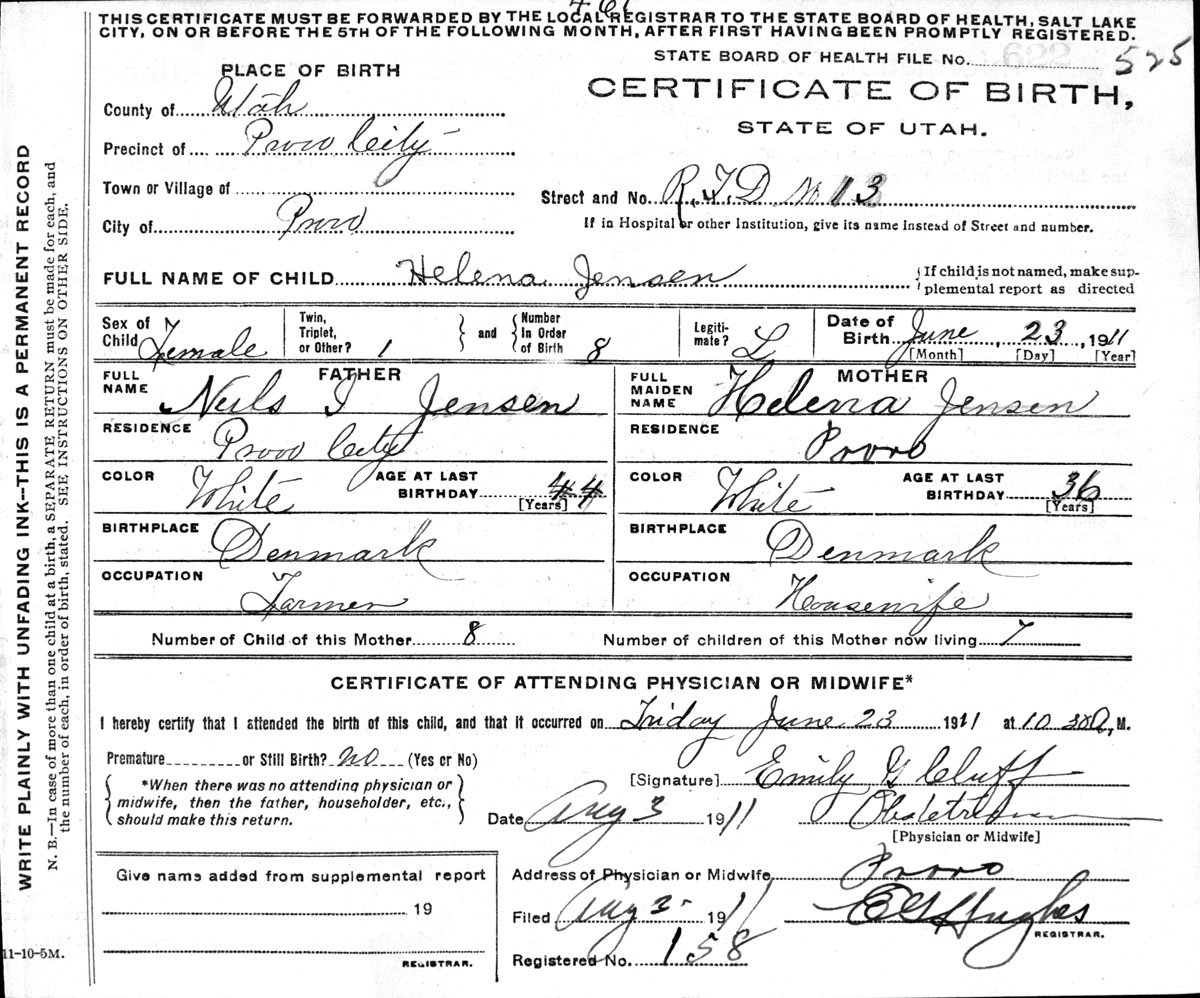 461
THIS CERTIFICATE MUST BE FORWARDED BY THE LOCAL REGISTRAR TO THE STATE BOARD OF HEALTH, SALT LAKE
CITY, ON OR BEFORE THE 5TH OF THE FOLLOWING MONTH, AFTER FIRST HAVING BEEN PROMPTLY REGISTERED.
STATE BOARD OF HEALTH FILE No. 622 525
PLACE OF BIRTH
CERTIFICATE OF BIRTH,
STATE OF UTAH.
County of Utah
Precinct of Provo City
Town or Village of
Street and No. R.F.D No 13
City of Provo
If in Hospital or other Institution, give its name Instead of Street and number.
FULL NAME OF CHILD Helena Jensen
{If child is not named, make sup-
plemental report as directed
Sex of Child Female
Twin, Triplet, or Other? 1
and
Number In Order of Birth 8
Legiti-mate? L
Date of Birth June, 23, 1911
[Month] [Day] [Year]
FATHER
FULL NAME Neils I Jensen
MOTHER
FULL MAIDEN NAME Helena Jensen
RESIDENCE Provo City
RESIDENCE Provo
COLOR White
AGE AT LAST BIRTHDAY 44
[Years]
COLOR White
AGE AT LAST BIRTHDAY 36
[Years]
BIRTHPLACE Denmark
BIRTHPLACE Denmark
OCCUPATION Farmer
OCCUPATION Housewife
Number of Child of this Mother 8
Number of children of this Mother now living 7
CERTIFICATE OF ATTENDING PHYSICIAN OR MIDWIFE*
I hereby certify that I attended the birth of this child, and that it occurred on Friday June 23 1911 at 10 30 a, M.
Premature or Still Birth? no (Yes or No)
*When there was no attending physician or
midwife, then the father, householder, etc.,
should make this return.
[Signature] Emily G Cluff
Date Aug 3 1911
Obstetrician
[Physician or Midwife]
Give name added from supplemental report
19
REGISTRAR.
Address of Physician or Midwife Provo
Filed Aug 3 1911
E G Hughes
REGISTRAR.
Registered No. 158
WRITE PLAINLY WITH UNFADING INK--THIS IS A PERMANENT RECORD
N. B.—In case of more than one child at a birth, a SEPARATE RETURN must be made for each, and
the number of each, in order of birth, stated. SEE INSTRUCTIONS ON OTHER SIDE.
11-10-5M.